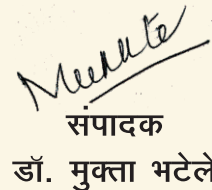 संपादक
डॉ. मुक्ता भटेले